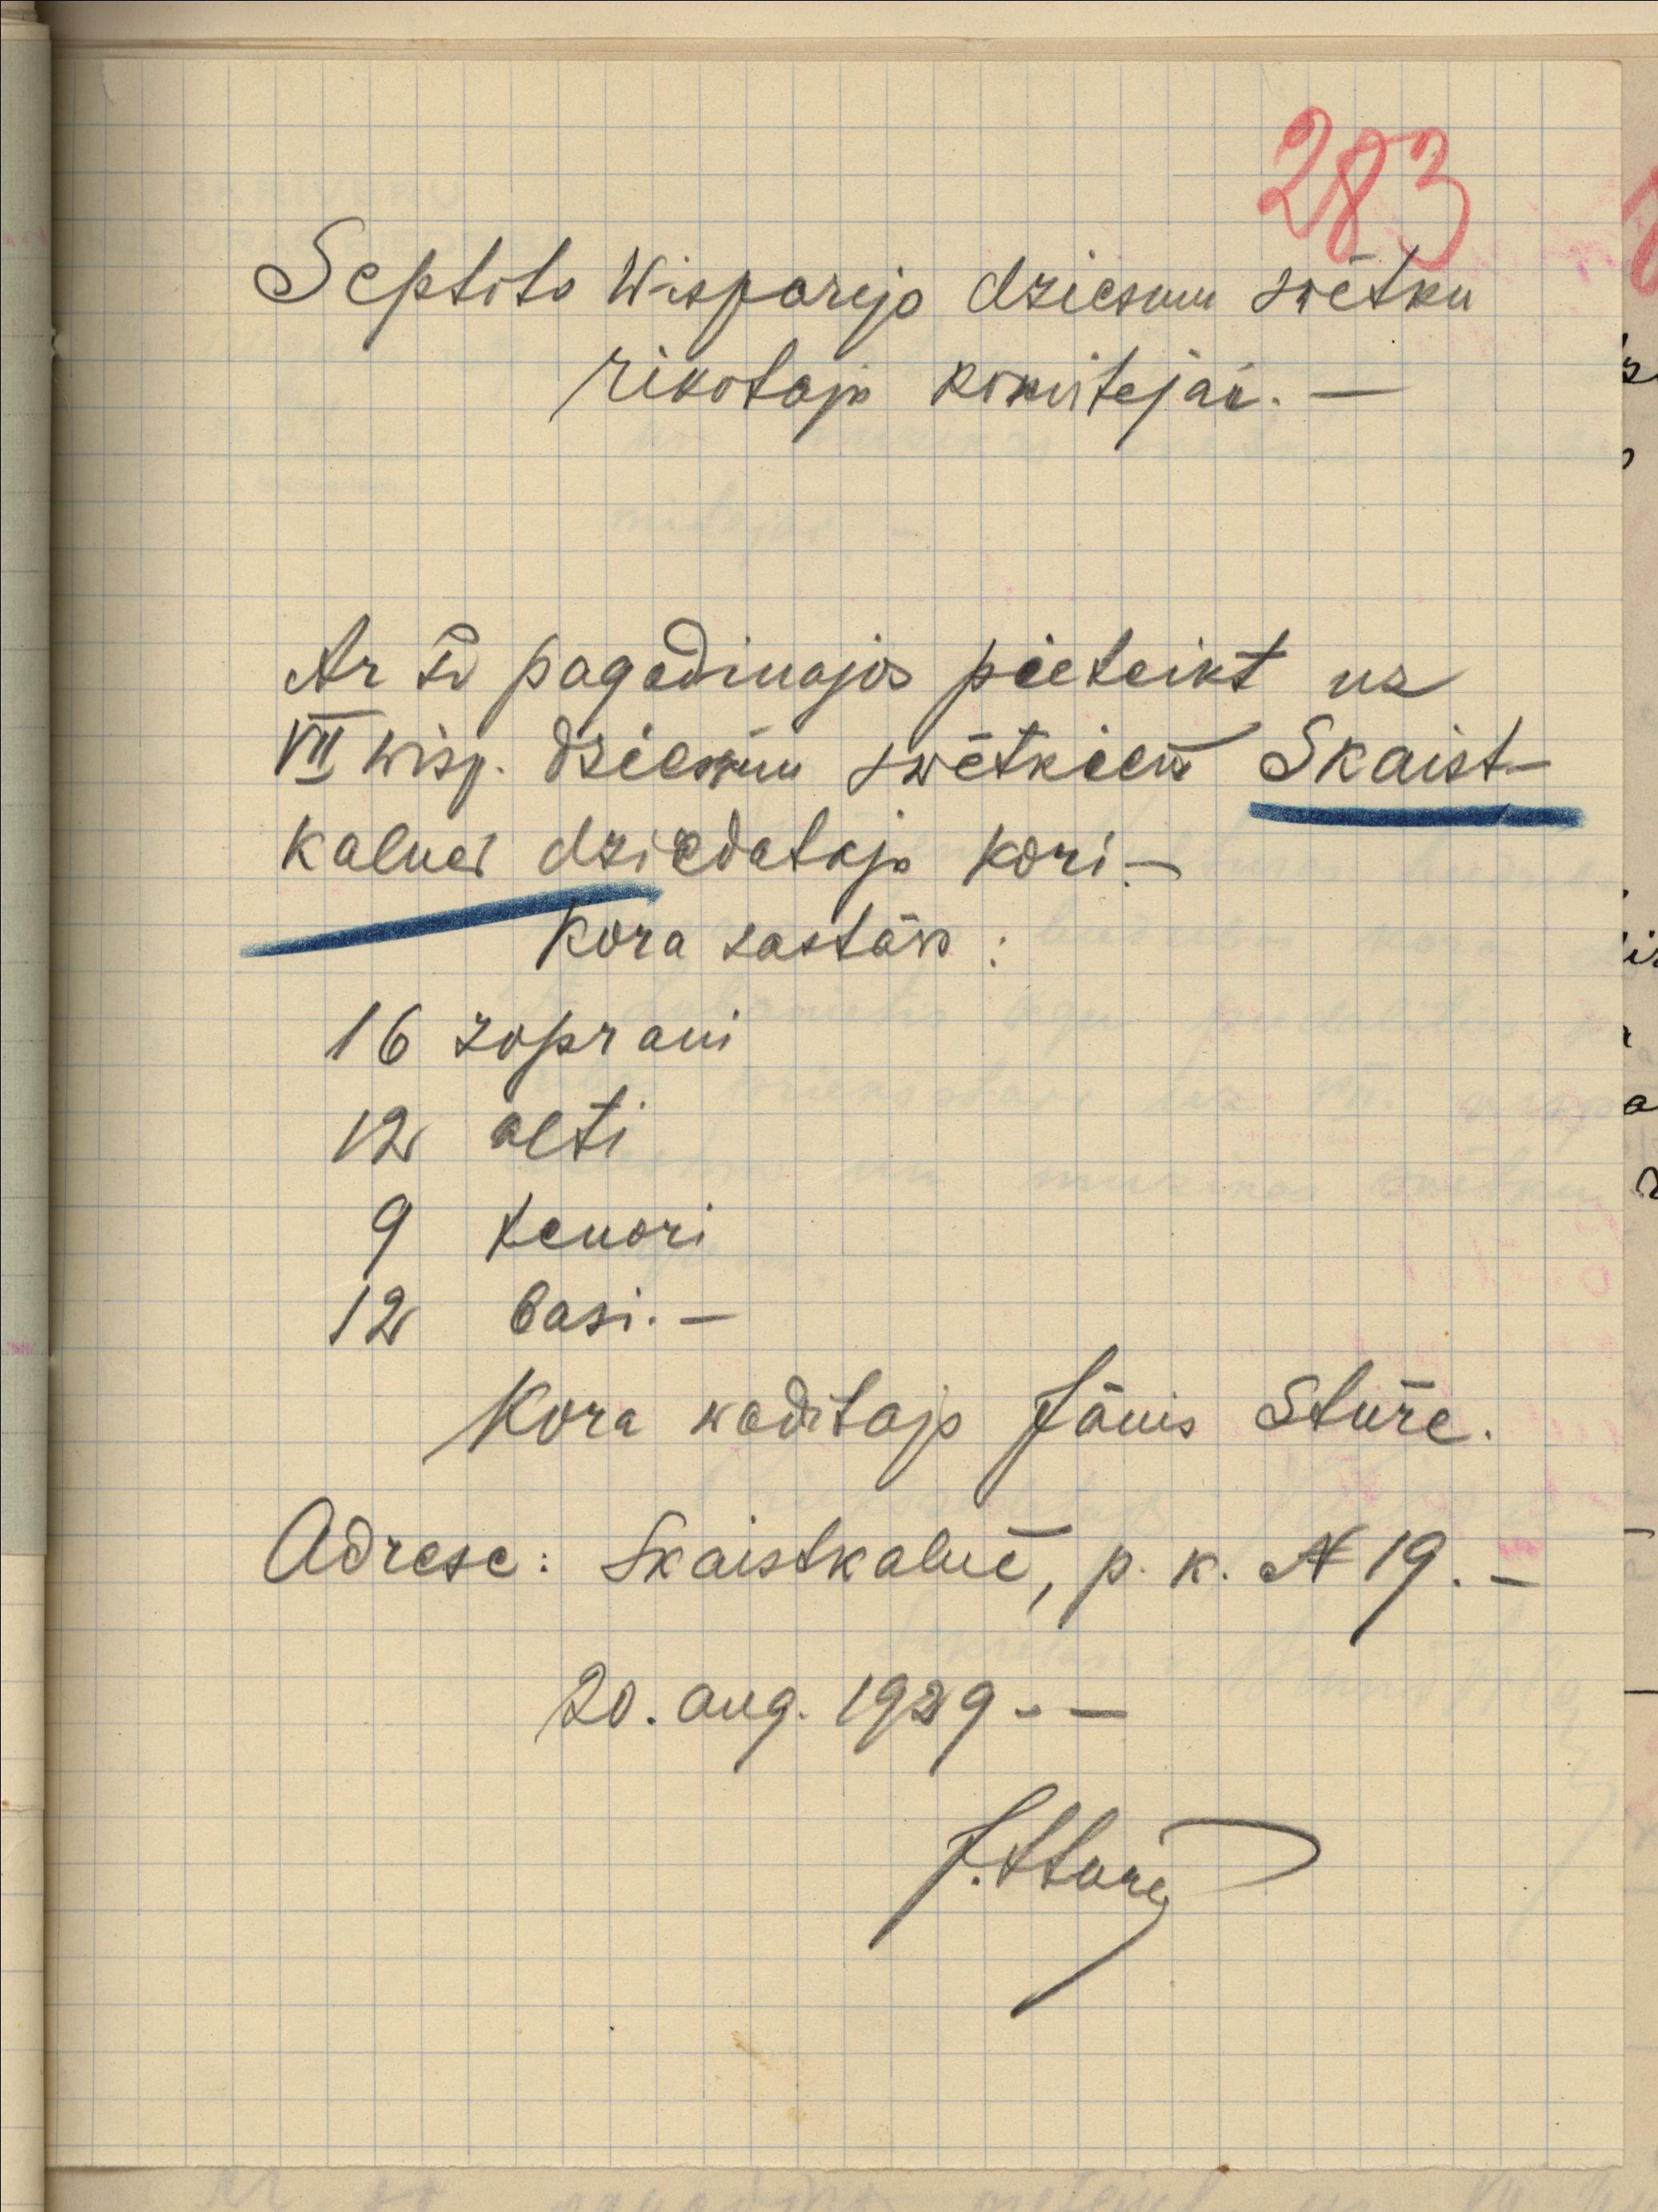 283
Septito Wisparejo dziesmu swētku
rikotaju komitejai. —
Ar šo pagodinajos pieteikt uz
VII wisp. dziesmu swētkiem Skaist-
kalnes dziedataju kori. —
Kora sastāvs :
16 soprani
12 alti
9 tenori
12 basi. —
Kora waditajs Jānis Stūre.
Adrese: Skaistkalnē, p. k. № 19. —
20. aug. 1929. —
J. Stūre